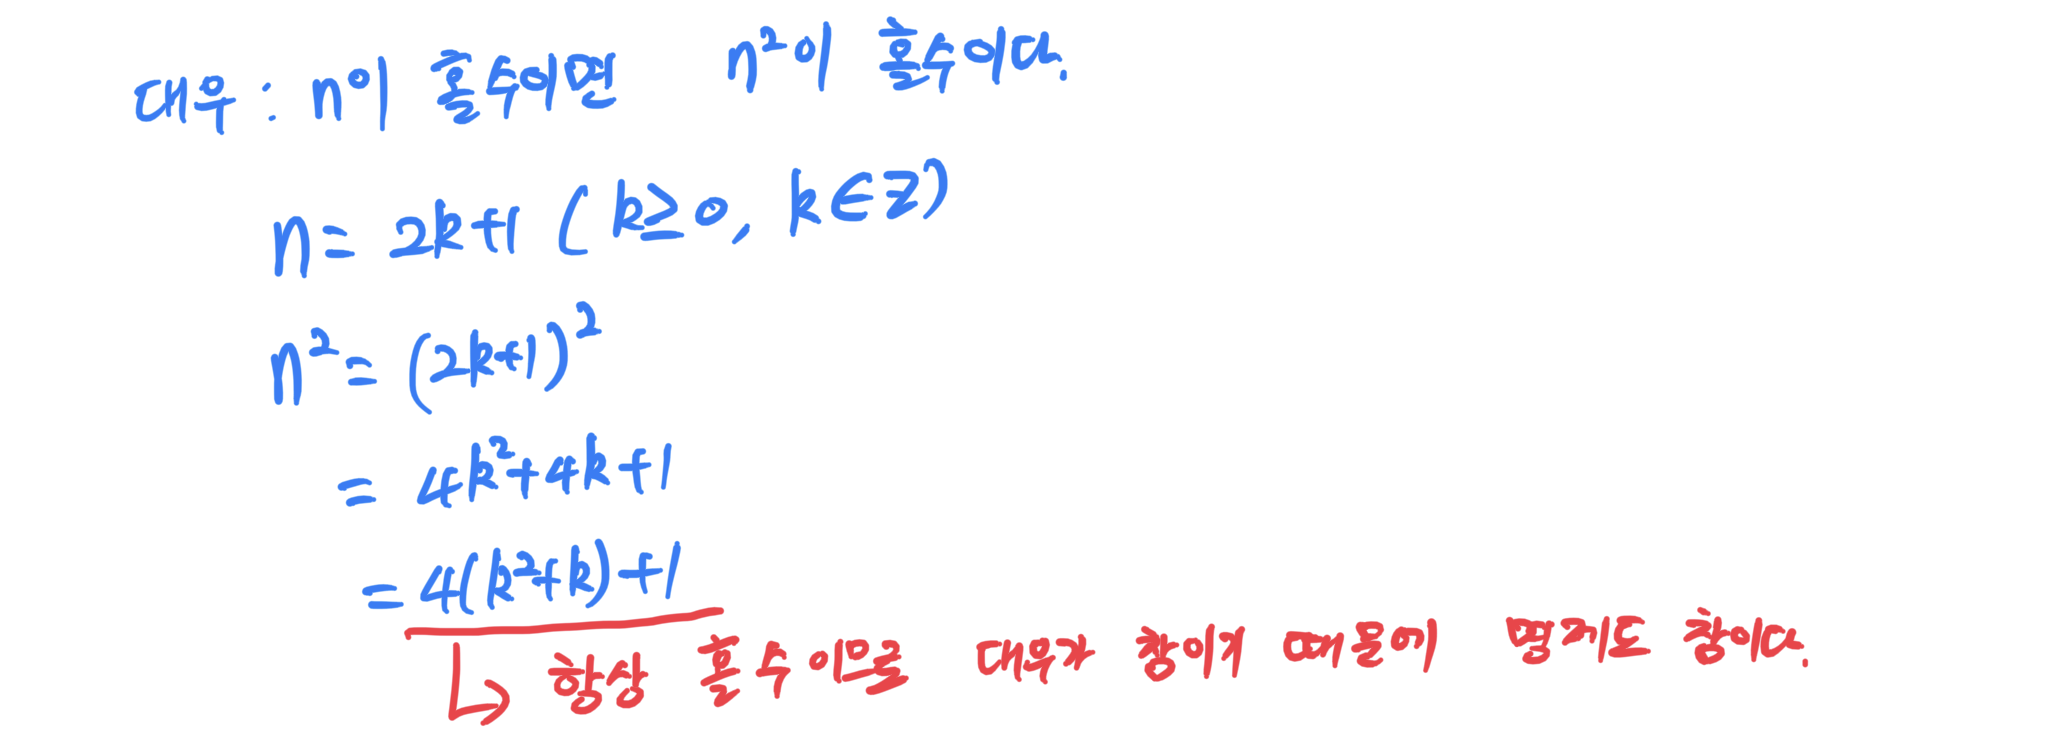 대우 : n이 홀수이면 n²이 홀수이다.
n = 2k+1 ( k≥0, k∈Z)
n² = (2k+1)²
= 4k²+4k+1
= 4(k²+k)+1
↳ 항상 홀수이므로 대우가 참이기 때문에 명제도 참이다.